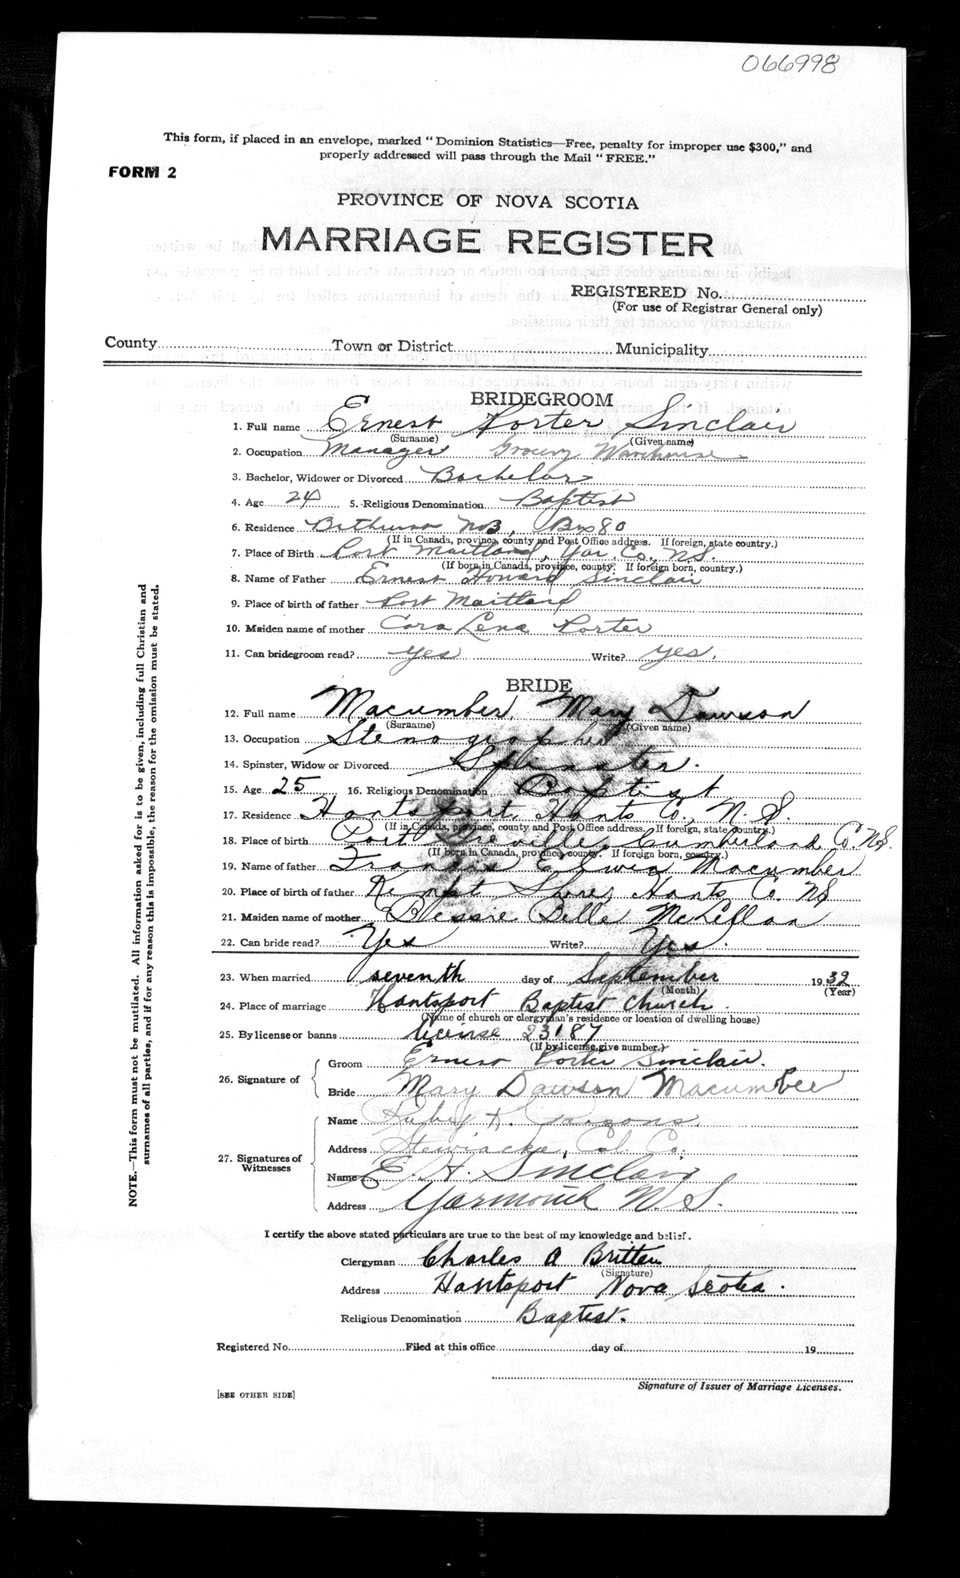 066998
This form, if placed in an envelope, marked "Dominion Statistics—Free, penalty for improper use $300," and
properly addressed will pass through the Mail "FREE."
FORM 2
PROVINCE OF NOVA SCOTIA
MARRIAGE REGISTER
REGISTERED No.
(For use of Registrar General only)
County Town or District Municipality
BRIDEGROOM
1. Full name Ernest Porter Sinclair
(Surname) (Given name)
2. Occupation Manager Grocery Warehouse
3. Bachelor, Widower or Divorced Bachelor
4. Age 24 5. Religious Denomination Baptist
6. Residence N.B., Box 80
(If in Canada, province, county and Post Office address. If foreign, state country.)
7. Place of Birth Port Maitland, Yar. Co., N.S.
(If born in Canada, province, county. If foreign born, country.)
8. Name of Father Ernest Howard Sinclair
9. Place of birth of father Port Maitland
10. Maiden name of mother Cora Lena Porter
11. Can bridegroom read? yes Write? yes.
BRIDE
12. Full name Macumber, Mary Dawson
(Surname) (Given name)
13. Occupation Stenographer
14. Spinster, Widow or Divorced Spinster.
15. Age 25 16. Religious Denomination Baptist
17. Residence Hantsport, Hants Co., N.S.
(If in Canada, province, county and Post Office address. If foreign, state country.)
18. Place of birth Port Greville, Cumberland Co. N.S.
(If born in Canada, province, county. If foreign born, country.)
19. Name of father Francis Edwin Macumber
20. Place of birth of father Kempt Shore, Hants Co. N.S.
21. Maiden name of mother Bessie Belle McLellan
22. Can bride read? Yes Write? Yes.
23. When married seventh day of September 1932
(Month) (Year)
24. Place of marriage Hantsport Baptist Church.
(Name of church or clergyman's residence or location of dwelling house)
25. By license or banns license 23187
(If by license, give number.)
26. Signature of
Groom Ernest Porter Sinclair.
Bride Mary Dawson Macumber
27. Signatures of
Witnesses
Name Ruby K. Parsons.
Address Stewiacke, Col. Co.
Name E. H. Sinclair
Address Yarmouth N.S.
I certify the above stated particulars are true to the best of my knowledge and belief.
Clergyman Charles A Britten
(Signature)
Address Hantsport Nova Scotia.
Religious Denomination Baptist.
Registered No. Filed at this office day of 19
Signature of Issuer of Marriage Licenses.
[SEE OTHER SIDE]
NOTE.—This form must not be mutilated. All information asked for is to be given, including full Christian and
surnames of all parties, and if for any reason this is impossible, the reason for the omission must be stated.